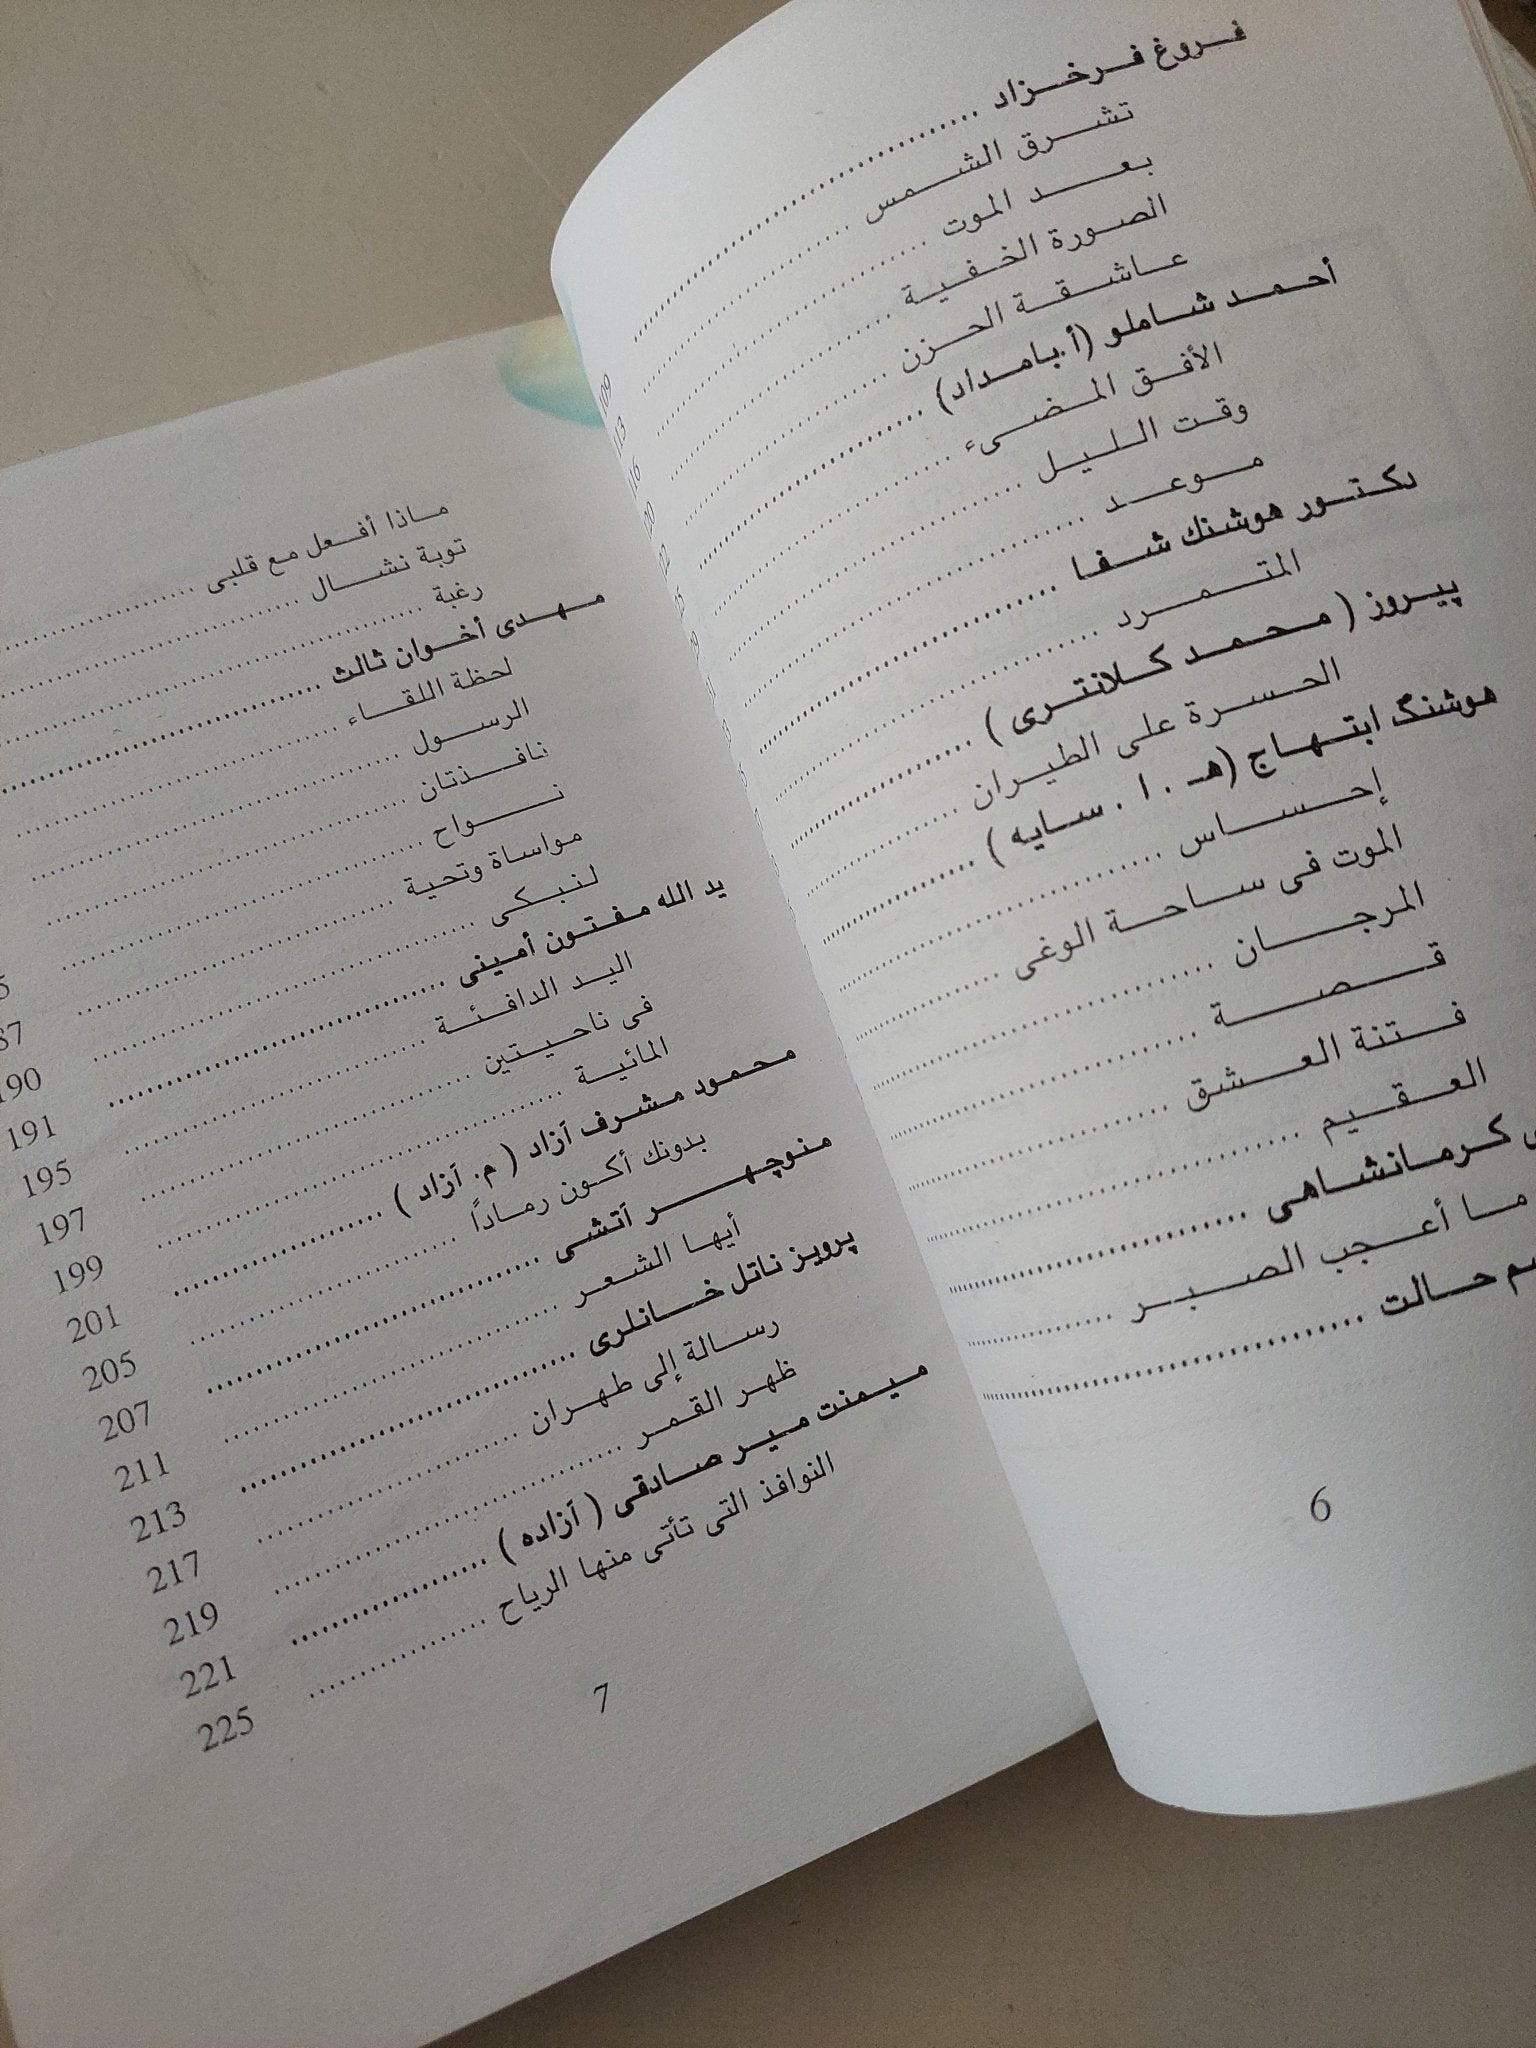 فروغ فرخزاد ........................ 109
تشرق الشمس ........................ 113
بعد الموت ........................ 116
الصورة الخفية ........................
عاشقة الحزن ........................
أحمد شاملو (أ.بامداد) ........................
الأفق المضىء ........................
وقت الليل ........................
موعد ........................
دكتور هوشنك شفا ........................
المتمرد ........................
پيروز ( محمد كلانترى ) ........................
الحسرة على الطيران ........................
هوشنگ ابتهاج (هـ . ا . سايه ) ........................
إحساس ........................
الموت فى ساحة الوغى ........................
المرجان ........................
قصة ........................
فتنة العشق ........................
العقيم ........................
كرمانشاهى ........................
ما أعجب الصبر ........................
حالت ........................
6
ماذا أفعل مع قلبى ........................
توبة نشال ........................
رغبة ........................
مهدى أخوان ثالث ........................
لحظة اللقاء ........................
الرسول ........................
نافذتان ........................
نواح ........................
مواساة وتحية ........................
لنبكى ........................ 190
يد الله مفتون أمينى ........................ 191
اليد الدافئة ........................ 195
فى ناحيتين ........................ 197
المائية ........................ 199
محمود مشرف آزاد ( م. آزاد ) ........................ 201
بدونك أكون رماداً ........................ 205
منوچهر آتشى ........................ 207
أيها الشعر ........................ 211
پرويز ناتل خانلرى ........................ 213
رسالة إلى طهران ........................ 217
ظهر القمر ........................ 219
ميمنت مير صادقى ( آزاده ) ........................ 221
النوافذ التى تأتى منها الرياح ........................ 225
7